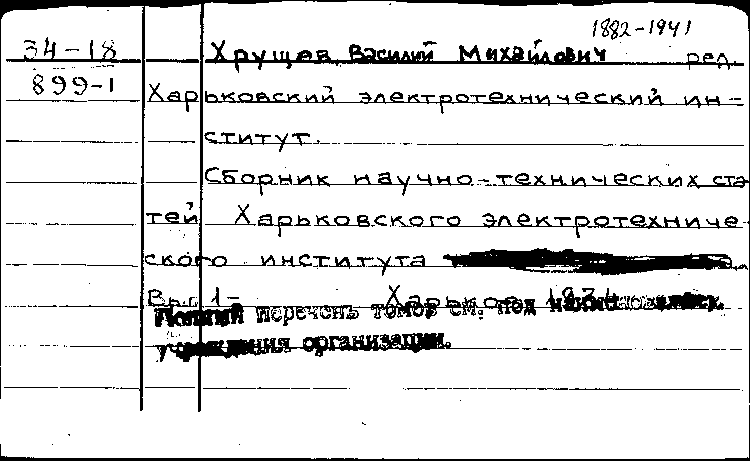 1882-1941
34-18 Хрущев Василий Михайлович ред.
899-1 Харьковский электротехнический ин-
ститут.
Сборник научно-технических ста
тей Харьковского электротехниче-
ского института
Вып. 1- Харьков
Полный перечень томов см. под наименованием
учреждения организации.